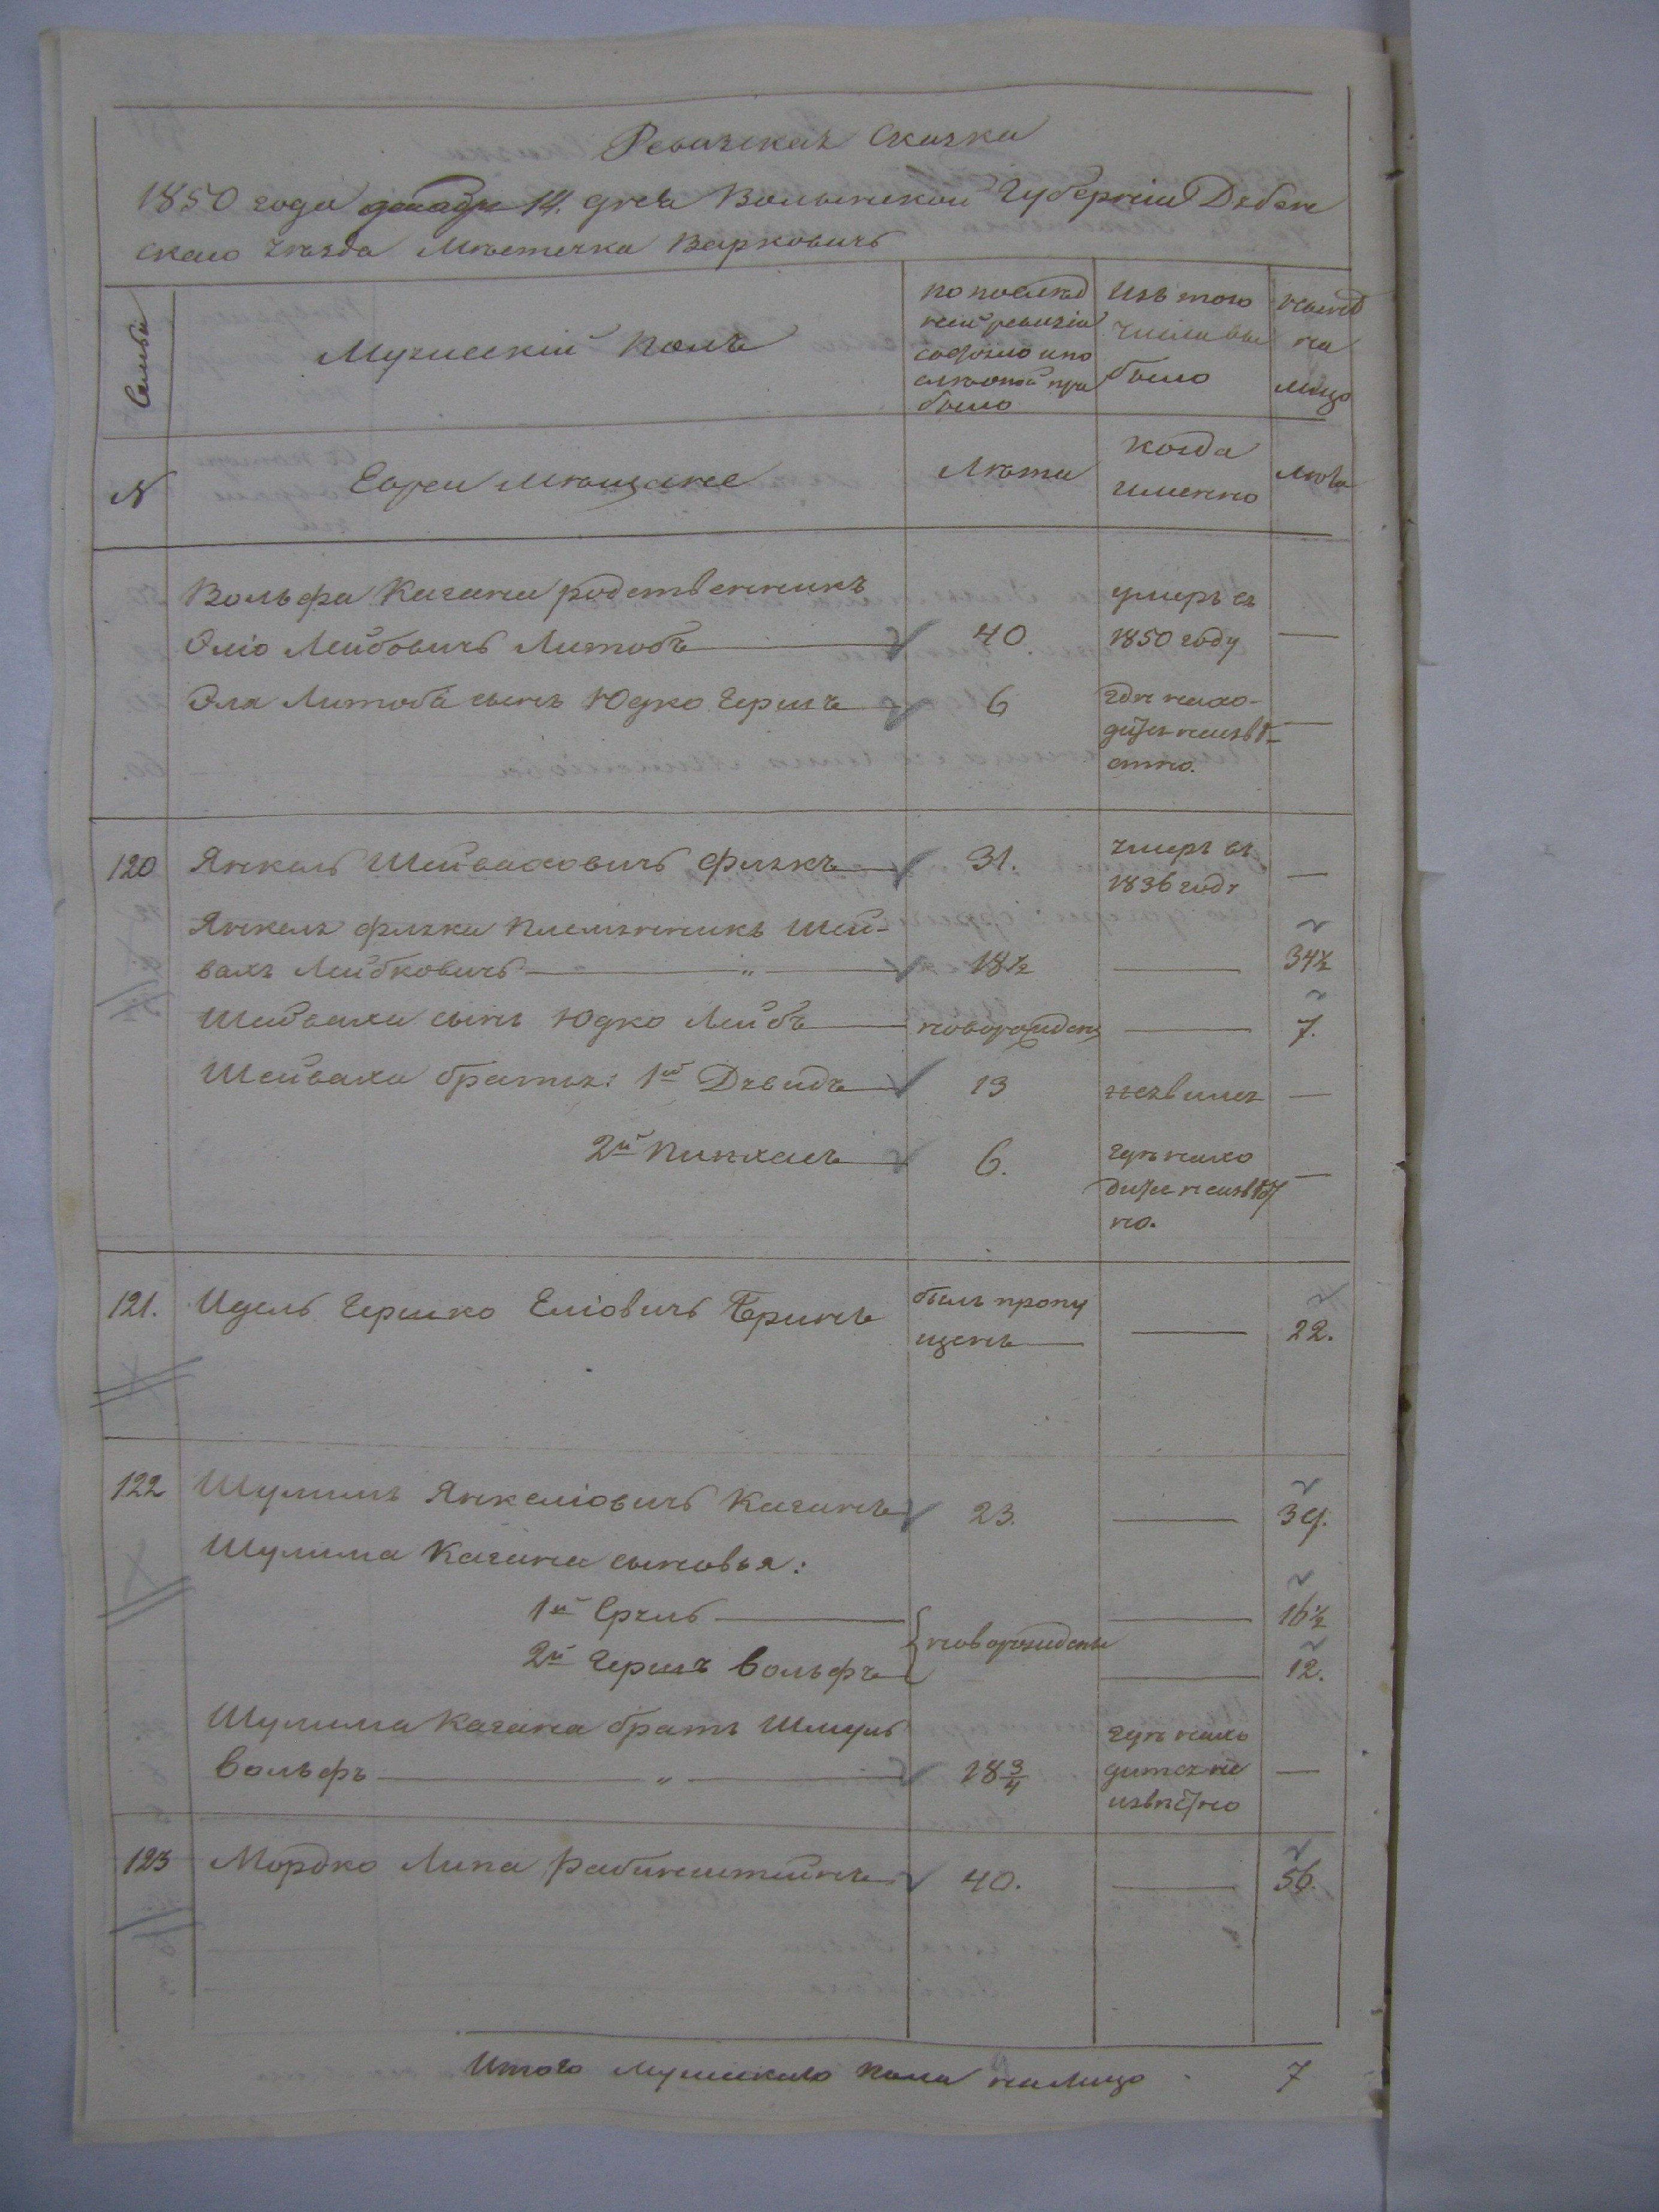 Ревизская Сказка
1850 года декабря 14. дня Волынской Губерніи Дубен
скаго уѣзда Мѣстечка Варковичь
Семьи
Мужескій полъ
по послѣд
ней ревизіи
состояло и по
слѣ оной при
было
Изъ того
числа вы
было
нынѣ
на
лицо
N
Евреи мѣщане
Лѣта
когда
именно
Лѣта
Вольфа Кагана родственникъ
Эліо Лейбовичъ Литобъ 40.
умеръ въ
1850 году —
Эля Литоба сынъ Юдко Гершъ 6
гдѣ нахо-
дитъся неизвѣ-
стно. —
120 Янкель Шейваховичъ Флякъ 31.
умеръ въ
1836 году —
Янкеля Фляка племянникъ Шей-
вахъ Лейбковичъ — " — " — 18½ — 34½
Шейваха сынъ Юдко Лейбъ новорожденъ — 7.
Шейваха братья: 1й Давидъ 13 —
2й Пинхасъ 6.
гдѣ нахо
дитъся неизвѣст
но. —
121. Идель Гершко Еліовичъ Бринъ
былъ пропу
щенъ — — 22.
122 Шулимъ Янкеліовичъ Каганъ 23. — 39.
Шулима Кагана сыновья:
1й Сруль — 16½
новорожденъ
2й Гершъ Вольфъ — 12.
Шулима Кагана братъ Шмуль
Вольфъ — " — 18¾
гдѣ нахо
дится не
извѣстно —
123 Мордко Липа Рабинштейнъ 40. — 56.
Итого мужескаго пола на лицо 7